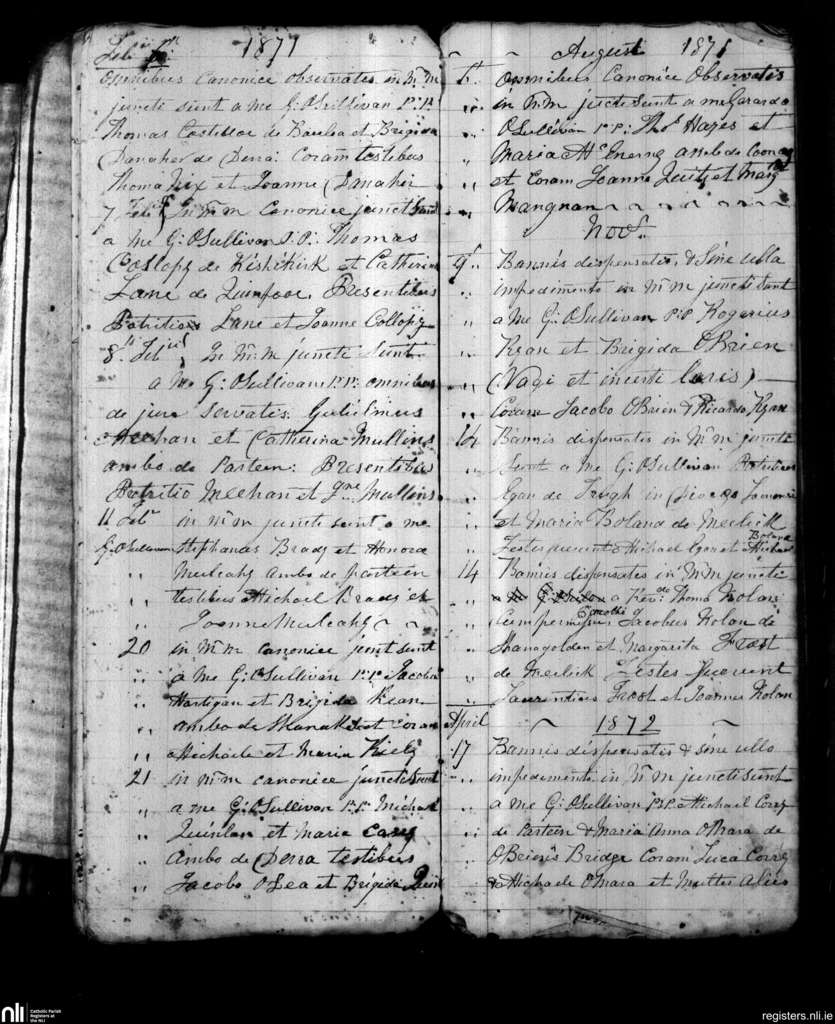 Feb 1871
omnibus canonice observatis in M'm
juncti sunt a me G: OSullivan P.P.
Thomas Costilloe de Baulea et Brigida
Danaher de Derra: Coram testibus
Thoma Fix et Joanna Danaher
7 Feb In M'm Canonice juncti sunt
a me G: OSullivan P.P: Thomas
Collopy de Kishikirk et Catherina
Lane de Quinpool Presentibus
Patritio Lane et Joanne Collopy
8th Feb In M'm juncti Sunt
a Me G: OSullivan P.P: omnibus
de jure Servatis: Gulielmus
Meehan et Catherina Mullins
ambo de Parteen: Presentibus
Patritio Meehan et Mullins
11 Feb in M'm juncti sunt a me
G: OSullivan Stephanus Brady et Honora
,, Mulcahy Ambo de parteen
,, testibus Michael Brady et
,, Joanne Mulcahy ~ ~
20 in M'm canonice junti sunt
,, a me G: OSullivan P.P. Jacobus
,, Hartigan et Brigida Kean
,, ambo de et coram
,, Michaele et Maria Kiely
21 in M'm canonice juncti sunt
,, a me G: OSullivan P.P. Michael
,, Quinlan et Maria Casey
,, Ambo de Derra testibus
,, Jacobo OLea et Brigida
August 1871
6 omnibus Canonice Observatis
,, in M'm juctisunt a me Garardo
,, OSullivan P.P: Thos Hayes et
,, Maria McEnerny ambo de
,, et Coram Joanne Quilty et Margt
,, Mangnan ~ ~ ~ ~
Novr
9th Bannis dispensatis, & Sine ulla
,, impedimento in M'm juncti sunt
,, a me G: OSullivan P:P Rogerius
,, Ryan et Brigida OBrien
,, (Vagi et incerti laris)
,, Coram Jacobo OBrien & Ricardo Ryan
14 Bannis dispensatis in M'm juncti
,, Sunt a Me G: OSullivan Patritius
,, Egan de Trogh in
,, et Maria Boland de Meelick
,, Testes fuerunt Michael Egan et Michael Boland
14 Bannis dispensatis in M'm juncti
,, a Revdo Thoma Nolan
,, Cum permissu Jacobus Nolan de
,, Shanagolden et Margarita Frost
,, de Meelick Testes fuerunt
,, Laurentius Frost et Joannes Nolan
April ~ 1872 ~
17 Bannis dispensatis & sine ullo
,, impedimento in M'm juncti sunt
,, a me G: OSullivan P.P. Michael Corry
,, de Parteen & Maria Anna OMara de
,, OBrien's Bridge Coram Luca Corry
& Michaele OMara et Multis Aliis
nli Catholic Parish
Registers at
the NLI
registers.nli.ie